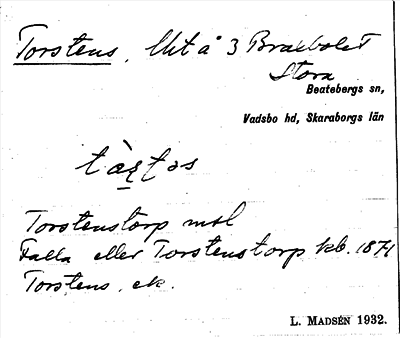 Torstens, Ut å 3 Brakbolet
Stora
Beatebergs sn,
Vadsbo hd, Skaraborgs län
Torstenstorp msl
Falla eller Torstenstorp kb. 1871
Torstens, ek.
L. MADSÉN 1932.